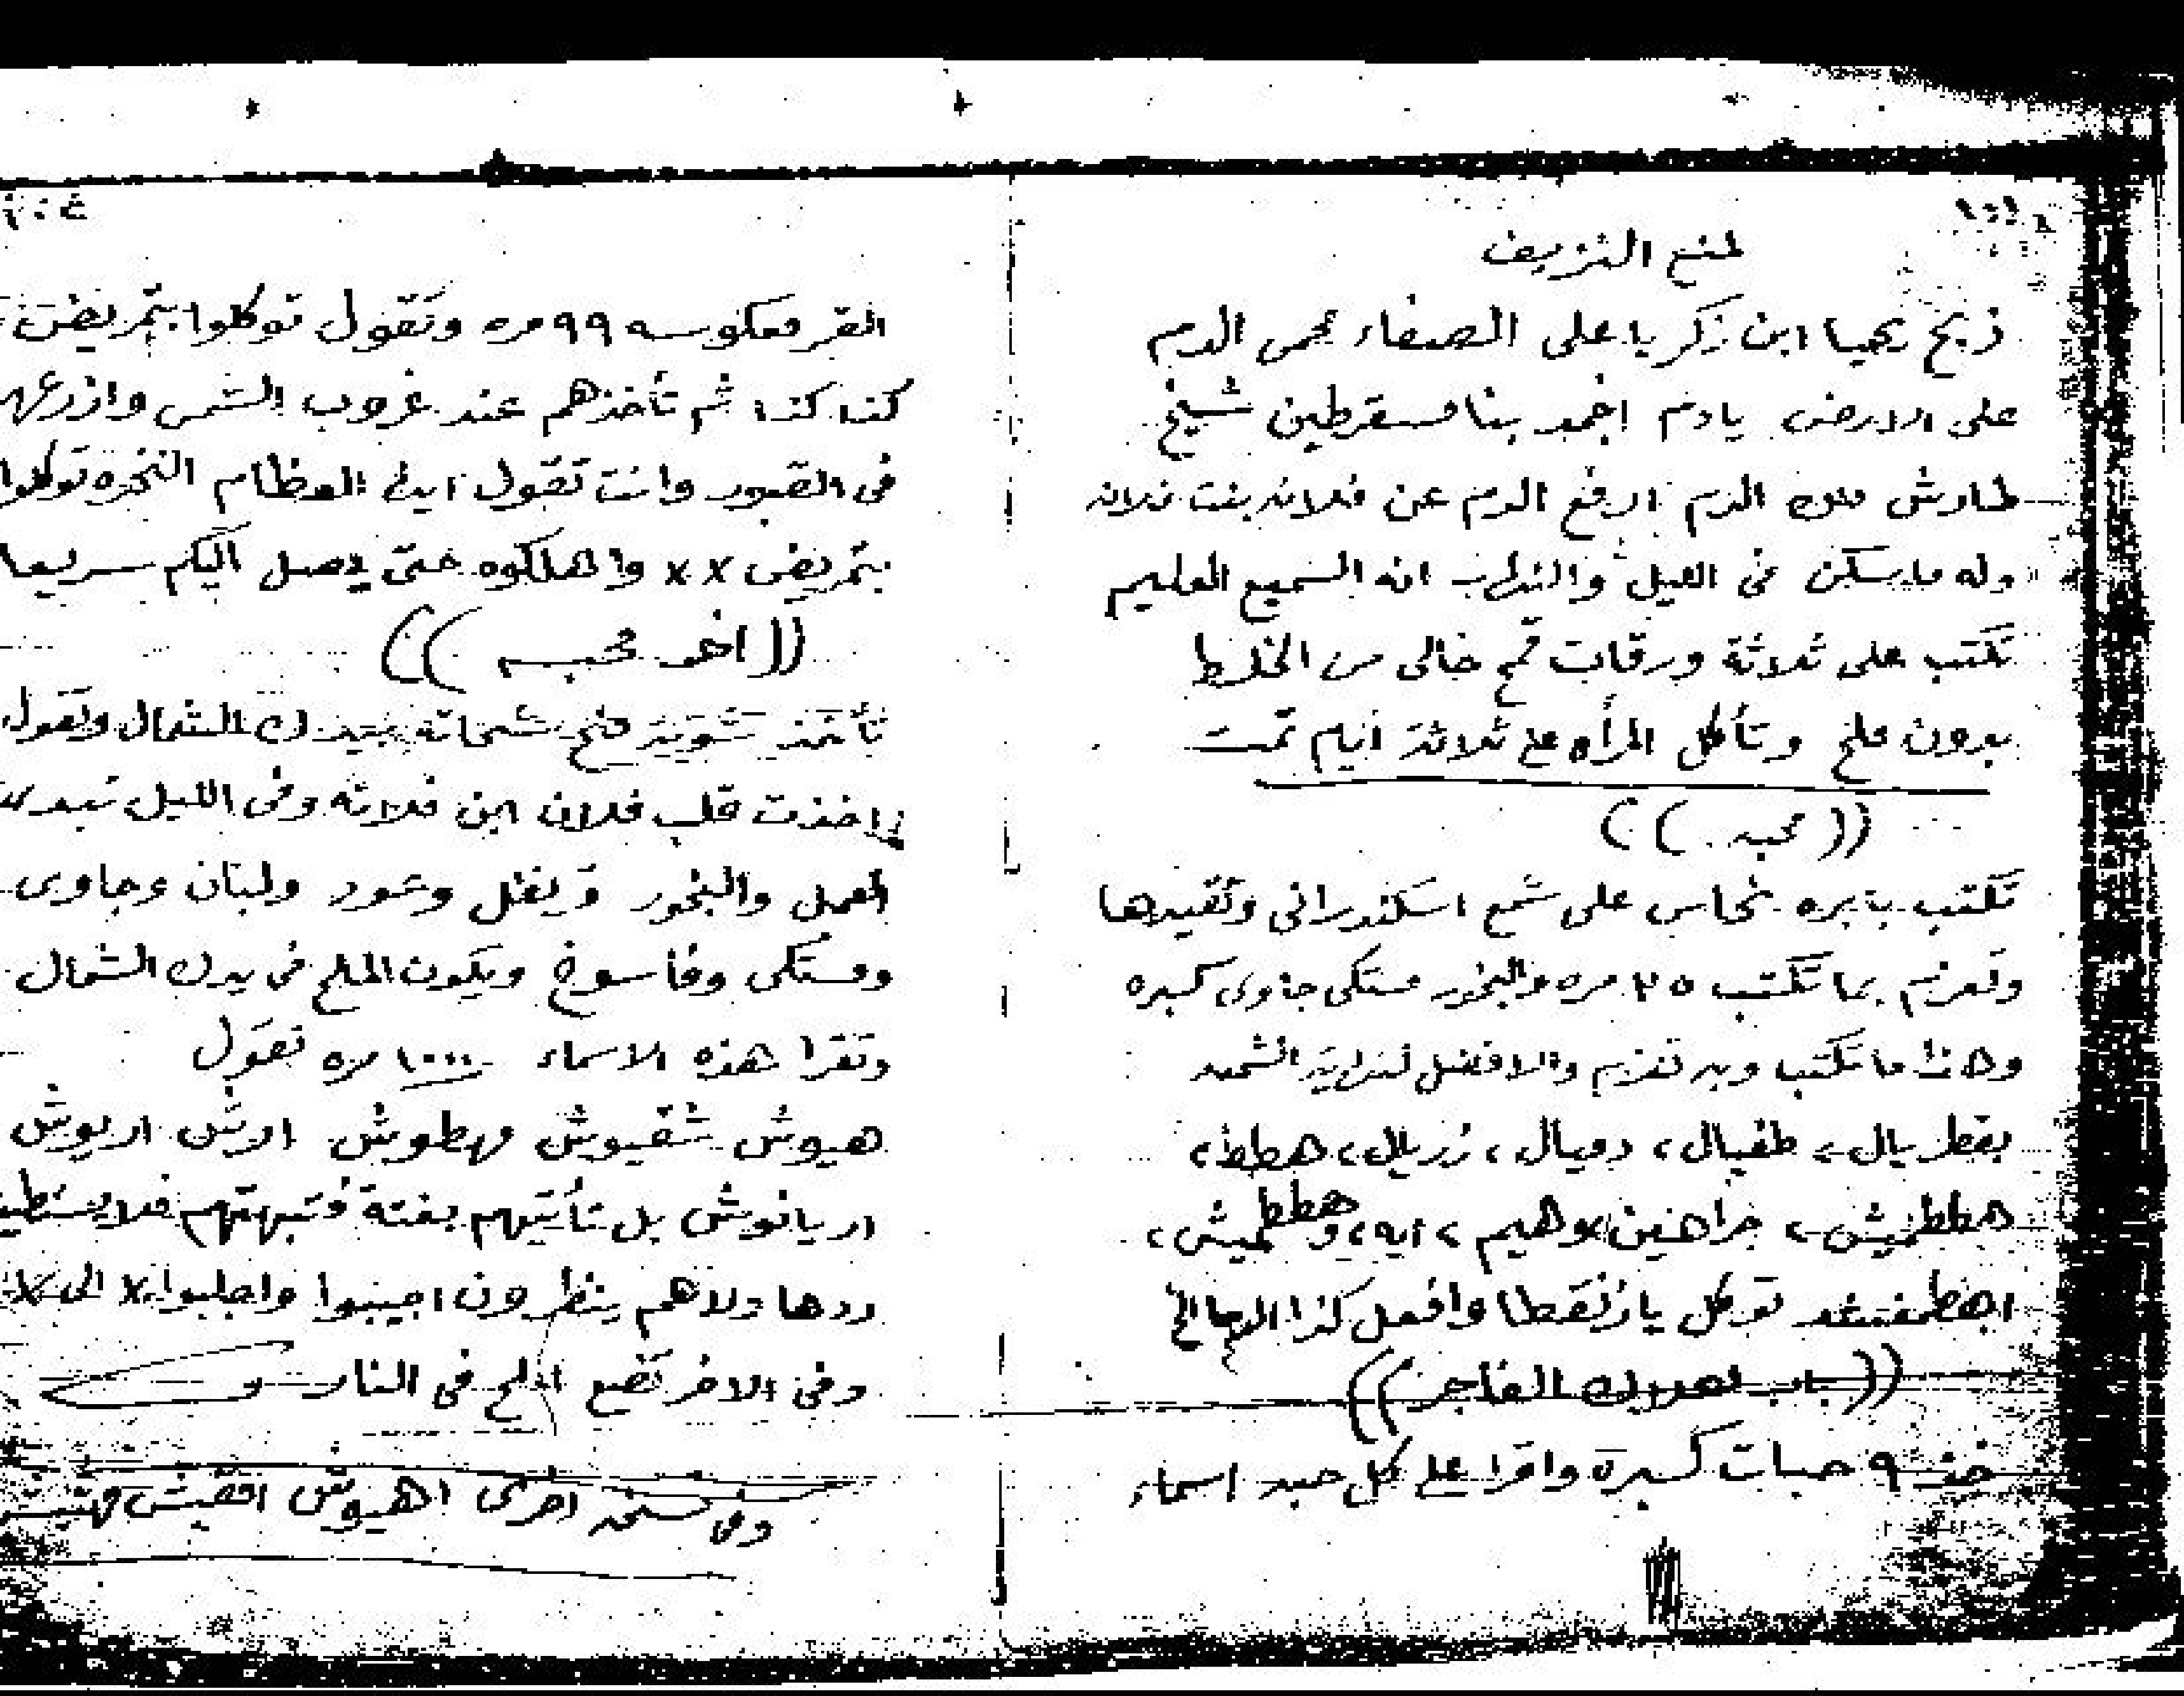 لمنع النزيف
ذبح يحيا ابن زكريا على الصفاء الدم
على الارض يادم اجمد بنا شيخ
الدم ارفع الدم عن فلانه بنت فلانه
وله ماسكن فى الليل والنهار انه السميع العليم
تكتب على ثلاثة ورقات قمح خالى من الخلط
بدون ملح وتأكل المرأه على ثلاثة ايام تمت
(( محبه ))
تكتب بابره نحاس على شمع اسكندرانى وتقيدها
وتعزم بما تكتب ٢٥ مره والبخور مستكى جاوى كسبره
وهذا ما تكتب وبه تعزم والافضل لنهاية الشمعه
بقطريال، طفيال، دميال، زريال، هطط،
هططميش، جراهين، وهيم، ايه، وهططميش،
توكل يازنقطا وافعل كذا الوحا الخ
((باب لهلاك الفاجر))
خذ ٩ حبات كسبرة واقرا على كل حبه اسماء
القمر معكوسه ٩٩ مره وتقول توكلوا بتمريض
كذا كذا ثم تأخذهم عند غروب الشمس وازرعهم
فى القبور وانت تقول ايها العظام النخره توكلوا
بتمريض x x واهلكوه حتى يصل اليكم سريعا
((اخر محبه))
تأخذ شوية ملح شحاته بيدك الشمال وتقول
اخذت قلب فلان ابن فلانه وفى الليل تبدى
العمل والبخور قرنفل وعود ولبان وجاوى
ومستكى وفاسوخ ويكون الملح فى يدك الشمال
وتقرا هذه الاسماء ١٠٠٠ مره تقول
هيوش شقيوش مهطوش ارش اريوش
اريانوش بل تأتيهم بغتة فتبهتهم فلا يستطيعون
ردها ولاهم ينظرون اجيبوا واجلبوا x الى x
وفى الاخر تضع الملح فى النار
وفى نسخه اخرى اهيوش اقفيش